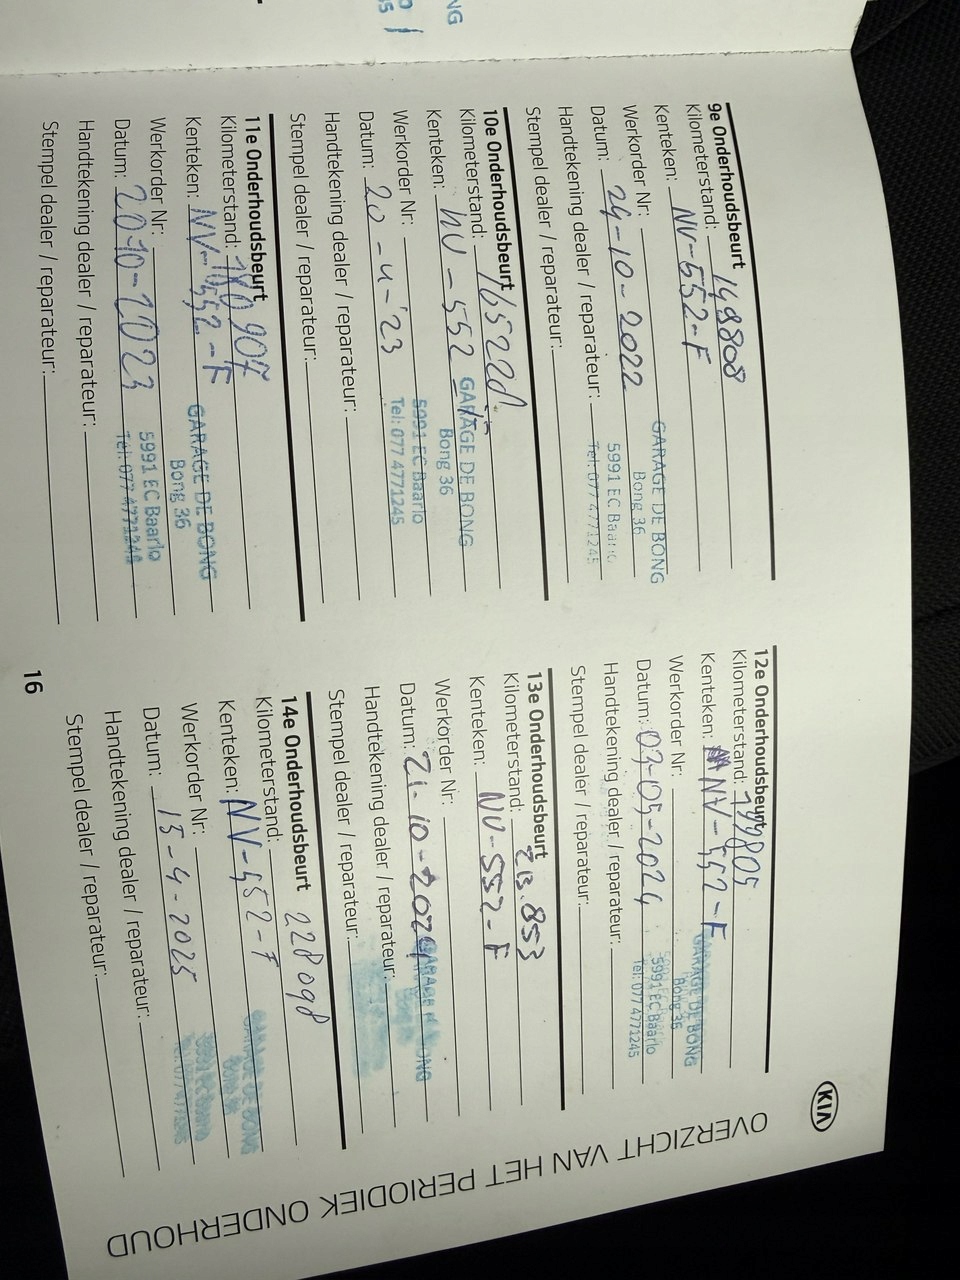 KIA
OVERZICHT VAN HET PERIODIEK ONDERHOUD
9e Onderhoudsbeurt
Kilometerstand: 148808
Kenteken: NV-552-F
Werkorder Nr:
Datum: 24-10-2022
Handtekening dealer / reparateur:
Stempel dealer / reparateur:
GARAGE DE BONG
Bong 36
5991 EC Baarlo
Tel: 077 4771245
10e Onderhoudsbeurt
Kilometerstand:
Kenteken: NV-552
Werkorder Nr:
Datum: 20-4-'23
Handtekening dealer / reparateur:
Stempel dealer / reparateur:
GARAGE DE BONG
Bong 36
5991 EC Baarlo
Tel: 077 4771245
11e Onderhoudsbeurt
Kilometerstand: 180907
Kenteken: NV-552-F
Werkorder Nr:
Datum: 20-10-2023
Handtekening dealer / reparateur:
Stempel dealer / reparateur:
GARAGE DE BONG
Bong 36
5991 EC Baarlo
Tel: 077 4771245
12e Onderhoudsbeurt
Kilometerstand: 199805
Kenteken: NV-552-F
Werkorder Nr:
Datum: 03-05-2024
Handtekening dealer / reparateur:
Stempel dealer / reparateur:
GARAGE DE BONG
Bong 36
5991 EC Baarlo
Tel: 077 4771245
13e Onderhoudsbeurt
Kilometerstand: 213.853
Kenteken: NV-552-F
Werkorder Nr:
Datum: 21-10-2024
Handtekening dealer / reparateur:
Stempel dealer / reparateur:
14e Onderhoudsbeurt
Kilometerstand: 228098
Kenteken: NV-552-F
Werkorder Nr:
Datum: 15-4-2025
Handtekening dealer / reparateur:
Stempel dealer / reparateur:
GARAGE DE BONG
16